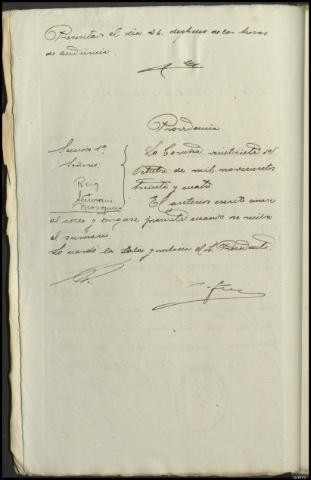 Presentado el día 26, despues de las horas
de audiencia.
Providencia
Sección 1ª
Señores:
Reig
Mosquera
La Coruña veintisiete de
Octubre de mil novecientos
treinta y cuatro.
El anterior escrito únase
al rollo y téngase presente cuando se reciba
el sumario.
Lo acordó la Sala y rubrica el Sr. Presidente